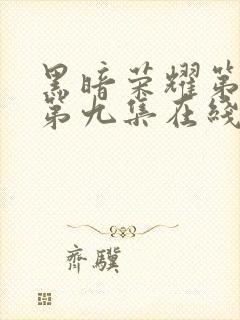 黑暗荣耀第
第九集在线
齐骥